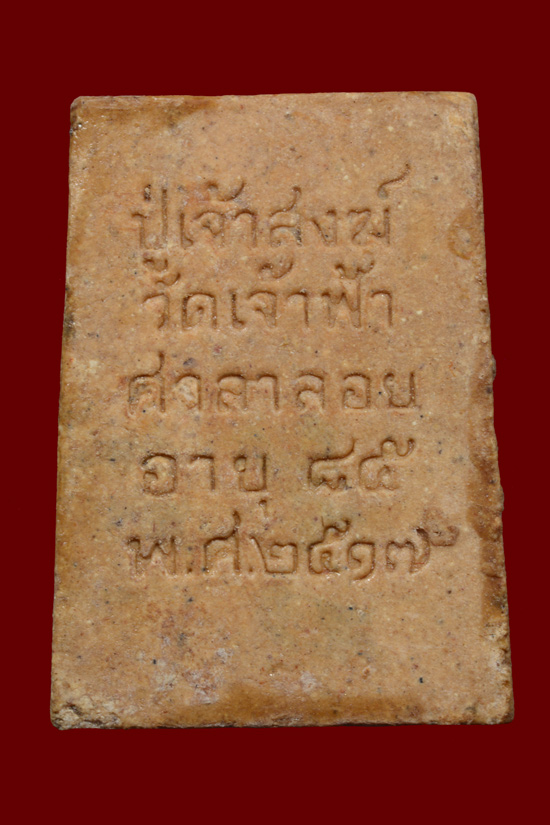 ปู่เจ้าสงฆ์
วัดเจ้าฟ้า
ศาลาลอย
อายุ ๘๕
พ.ศ.๒๕๑๗